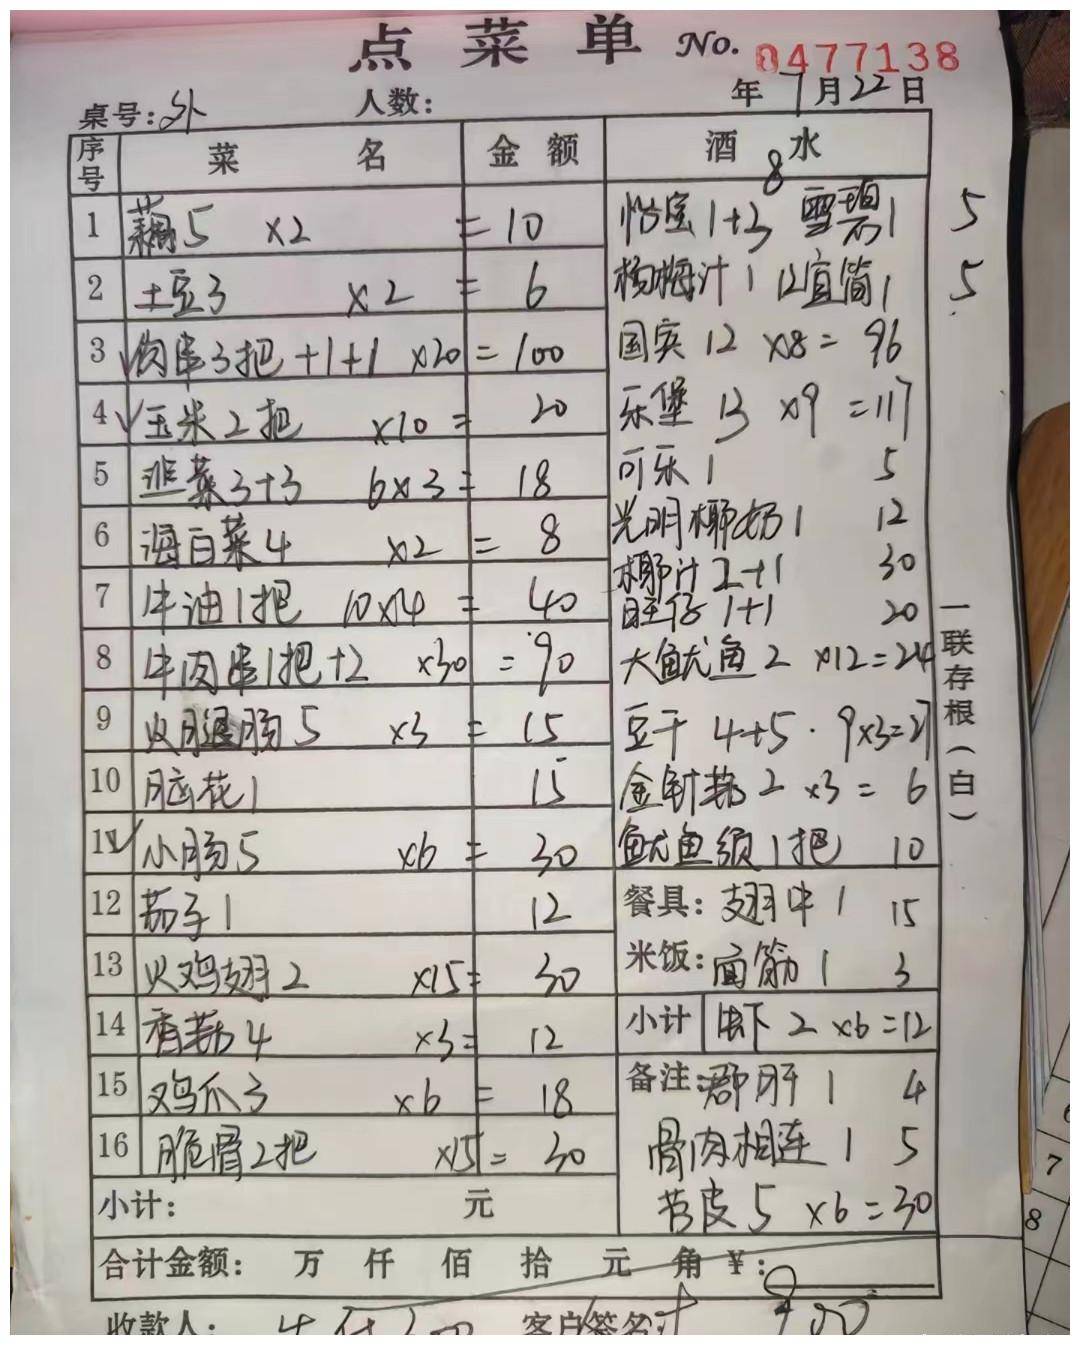 点菜单 No. 0477138
桌号:外 人数: 年7月22日
序号 菜名 金额 酒水
1 藕5 ×2 =10
2 土豆3 ×2 = 6
3 肉串3把+1+1 ×20=100
4 玉米2把 ×10= 20
5 韭菜3+3 6×3= 18
6 海白菜4 ×2 = 8
7 牛油1把 10×4 = 40
8 牛肉串1把+2 ×30 =90
9 火腿肠5 ×3 = 15
10 脑花1 15
11 小肠5 ×6 = 30
12 茄子1 12
13 火鸡翅2 ×15= 30
14 香菇4 ×3= 12
15 鸡爪3 ×6 = 18
16 脆骨2把 ×15= 30
小计: 元
8
怡宝1+3 雪碧1 5
杨梅汁1 1 5
国宾12 ×8= 96
乐堡 13 ×9 =117
可乐1 5
光明椰奶1 12
椰汁2+1 30
旺仔1+1 20
大鱿鱼2 ×12=24
豆干 4+5 · 9×3=27
金针菇2 ×3= 6
鱿鱼须1把 10
餐具: 翅中1 15
米饭: 面筋1 3
小计 2 ×6=12
备注: 郡肝1 4
骨肉相连1 5
苕皮5 ×6=30
一联存根(白)
合计金额: 万 仟 佰 拾 元 角 ¥:
收款人: 客户签名: 900
7
8